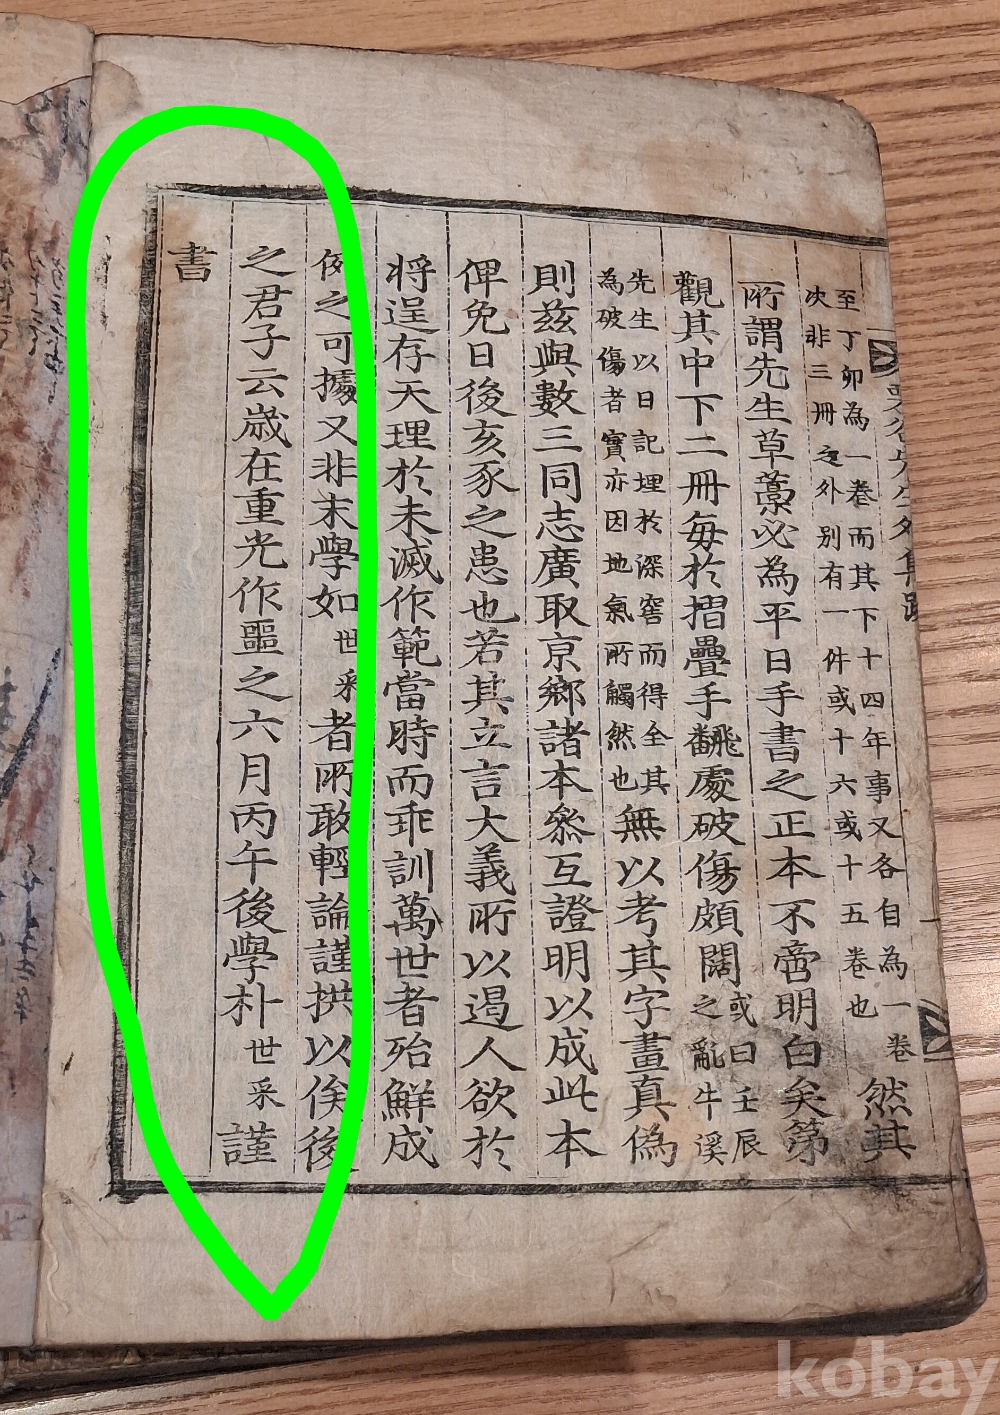 至丁卯為一卷而其下十四年事又各自為一卷
次非三冊之外別有一件或十六或十五卷也
然其
所謂先生草藁必為平日手書之正本不啻明白矣第
觀其中下二冊每於摺疊手飜處破傷頗闊
或曰壬辰
之亂牛溪
先生以日記埋於深窖而得全其
為破傷者實亦因地氣所觸然也
無以考其字畫真偽
則茲與數三同志廣取京鄉諸本參互證明以成此本
俾免日後亥豕之患也若其立言大義所以遏人欲於
將逞存天理於未滅作範當時而乖訓萬世者殆鮮成
例之可據又非末學如世采者所敢輕論謹拱以俟後
之君子云歲在重光作噩之六月丙午後學朴世采謹
書
kobay